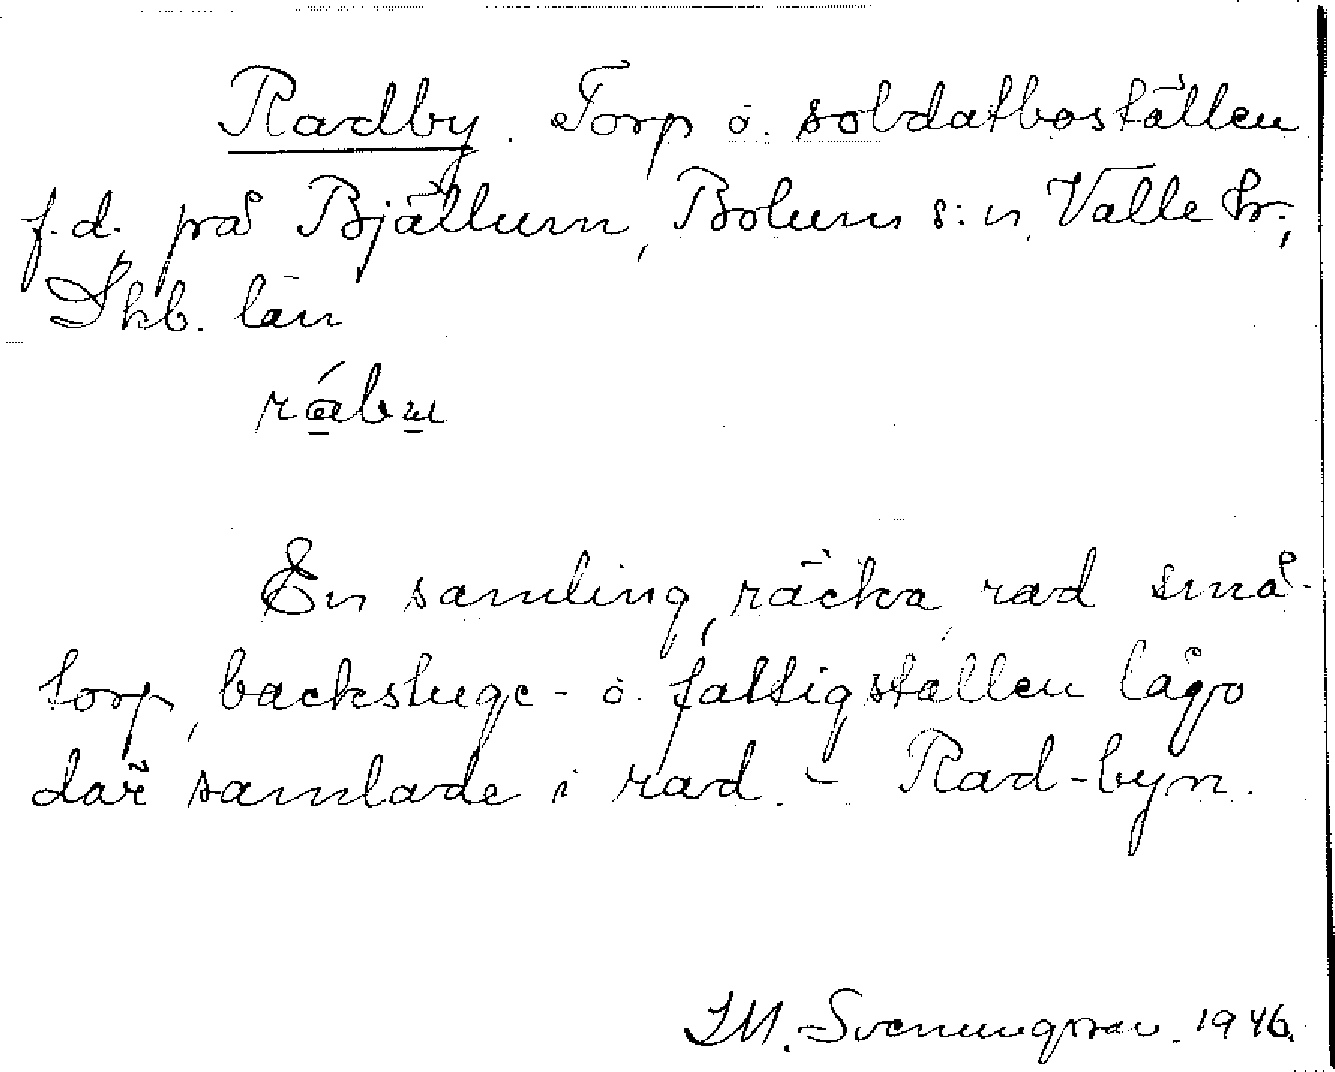 Radby. Torp o. soldatboställen
f.d. på Bjällum, Bolum s:n, Valle hr.,
Skb. län
En samling, räcka, rad små-
torp, backstuge- o. fattigställen lågo
där samlade i rad. – Rad-byn.
Svenungsson 1946.